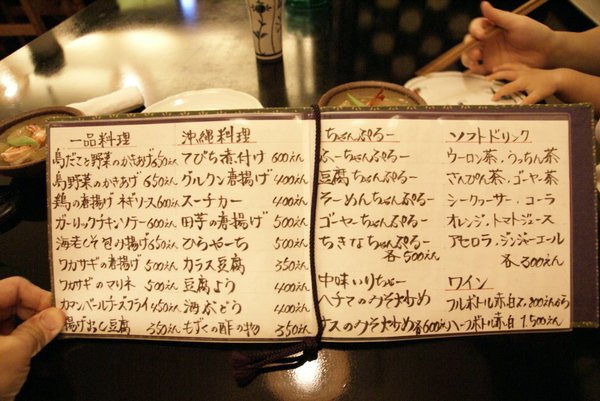 一品料理
島だこと野菜のかきあげ650えん
島野菜のかきあげ 650えん
鶏の唐揚げネギソース600えん
ガーリックチキンソテー600えん
海老しそ包み揚げ650えん
ワカサギの唐揚げ 500えん
ワカサギのマリネ 500えん
カマンベールチーズフライ450えん
揚げおし豆腐 350えん
沖縄料理
てびち煮付け 600えん
グルクン唐揚げ 400えん
スーチカー 400えん
田芋の唐揚げ 500えん
ひらやーち 500えん
カラス豆腐 350えん
豆腐よう 400えん
海ぶどう 400えん
もずくの酢の物 350えん
ちゃんぷるー
ふーちゃんぷるー
豆腐ちゃんぷるー
そーめんちゃんぷるー
ゴーヤーちゃんぷるー
ちきなちゃんぷるー
各500えん
中味いりちゃー
ヘチマのみそ炒め
ナスのみそ炒め各600えん
ソフトドリンク
ウーロン茶、うっちん茶
さんぴん茶、ゴーヤー茶
シークヮーサー、コーラ
オレンジ、トマトジュース
アセロラ、ジンジャーエール
各300えん
ワイン
フルボトル赤白2,800えんから
ハーフボトル赤白 1,500えん